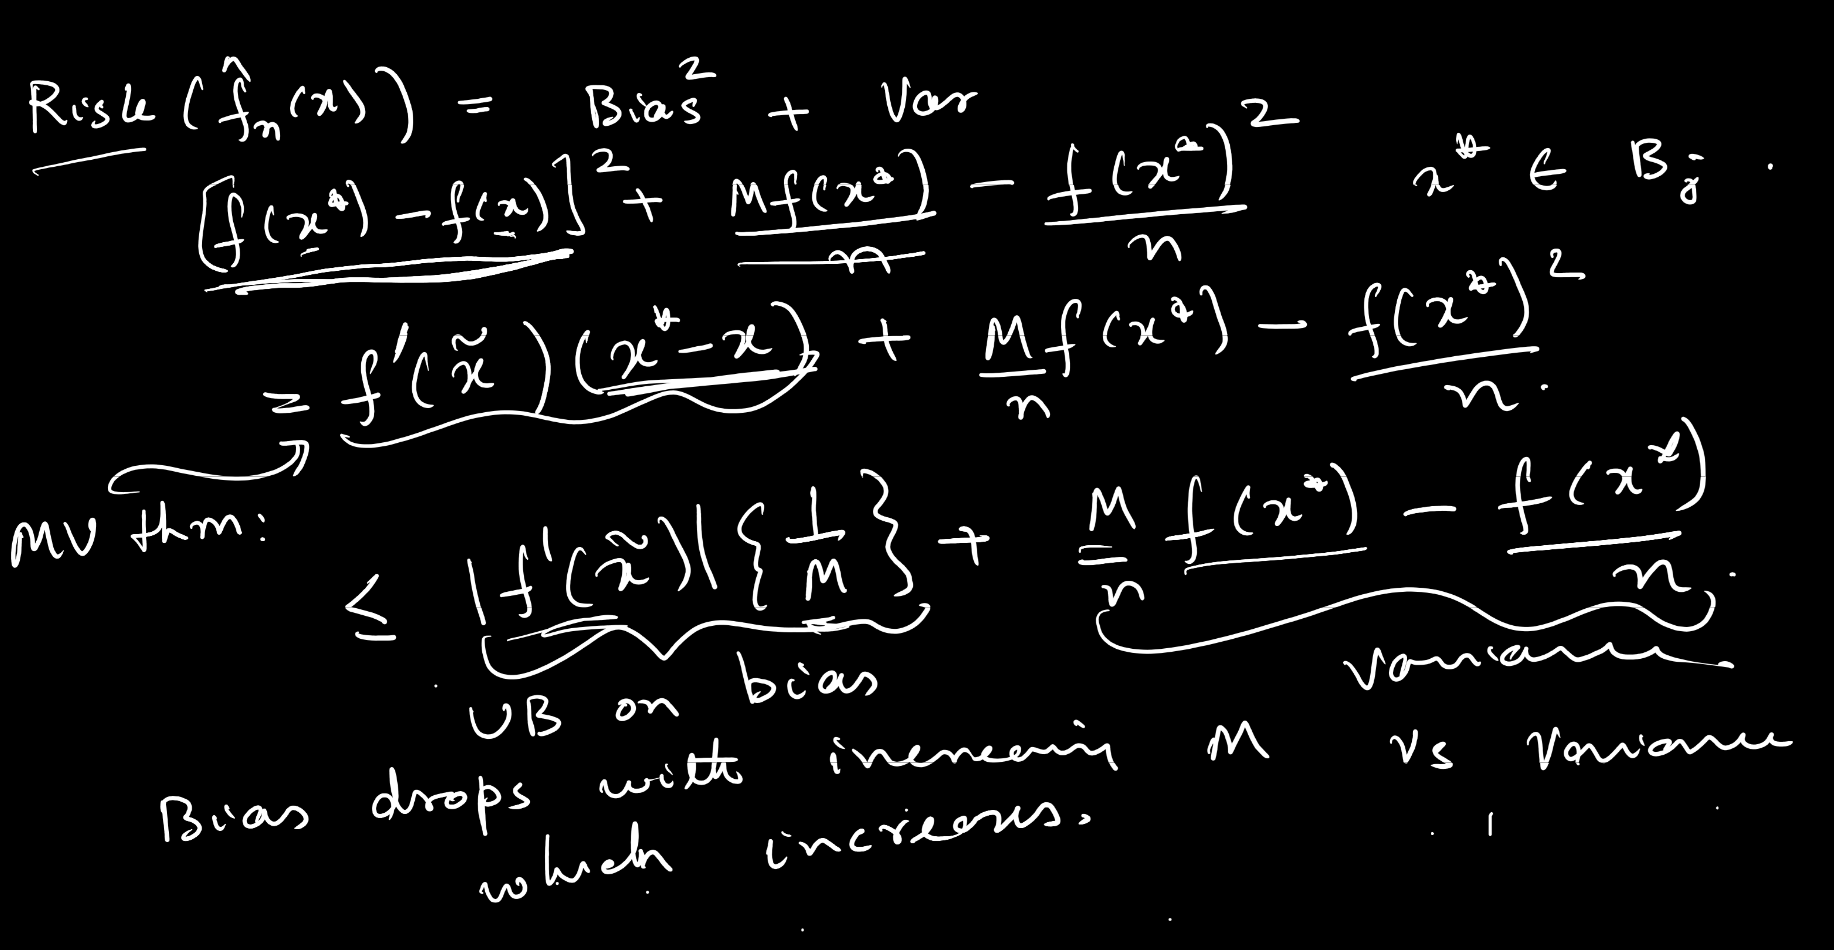 Risk (f̂ₙ(x)) = Bias² + Var
[f(x*) – f(x)]² + Mf(x*)/n – f(x*)²/n    x* ∈ Bⱼ .
= f'(x̃)(x* – x) + M/n f(x*) – f(x*)²/n .
MV thm:
≤ |f'(x̃)| {1/M} + M/n f(x*) – f(x*)/n .
UB on bias    variance
Bias drops with increasing M vs Variance
which increases.